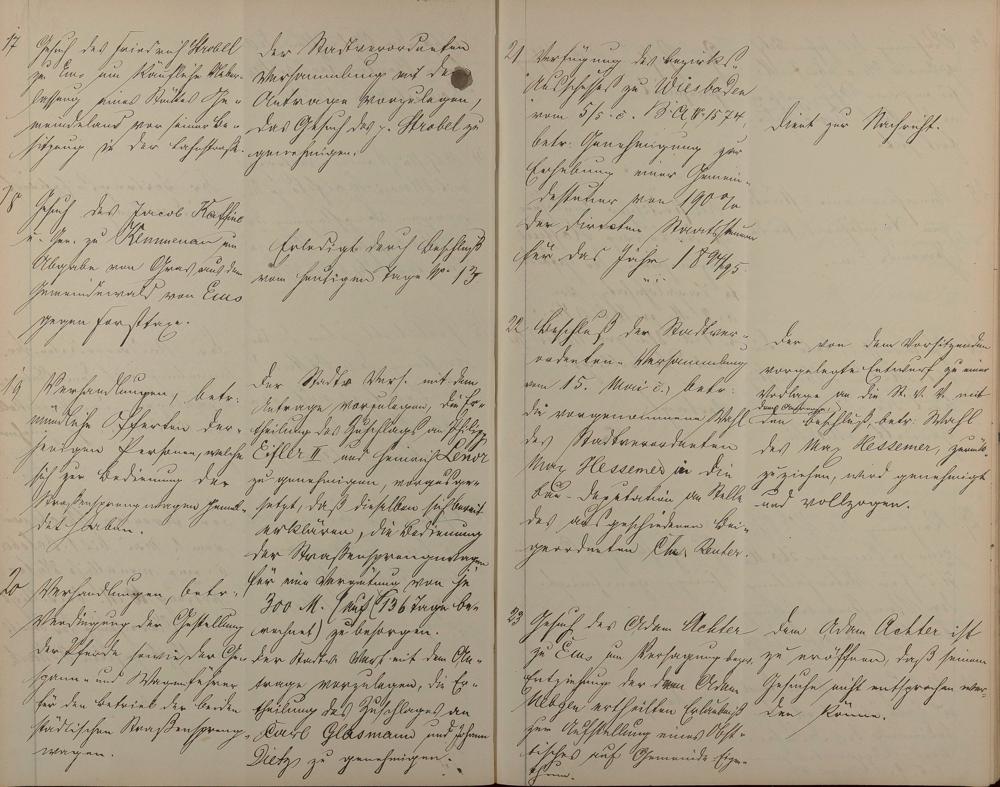 17
Gesuch des Friedrich Strobel
zu Ems um käufliche Ueber-
lassung eines Stückes Ge-
meindeland vor seiner Be-
sitzung in der Lahnstraße.
Der Stadtverordneten
Versammlung mit dem
Antrage vorzulegen,
das Gesuch des p. Strobel zu
genehmigen.
18
Gesuch des Jacob
u. Gen. zu Kemmenau um
Abgabe von Gras aus dem
Gemeindewald von Ems
gegen Forsttaxe.
Erledigt durch Beschluß
vom heutigen Tage No. 13
19
Verhandlungen, betr.
mündliche Offerten der-
jenigen Personen, welche
sich zur Bedienung der
Straßensprengwagen gemel-
det haben.
Der Stadtv. Vers. mit dem
Antrage vorzulegen, die Er-
theilung des Zuschlags an Philipp
Eisler II und Heinrich
zu genehmigen, vorausge-
setzt, daß dieselben sich bereit
erklären, die Bedienung
der Strassensprengwagen
für eine Vergütung von je
300 M. (auf 136 Tage be-
rechnet) zu besorgen.
20
Verhandlungen, betr.
Verdingung der Gestellung
der Pferde sowie der Ge-
spann- und Wagenführer
für den Betrieb der beiden
städtischen Straßenspreng-
wagen.
Der Stadtv. Vers. mit dem An-
trage vorzulegen, die Er-
theilung des Zuschlages an
Carl Glasmann und Johann
Dietz zu genehmigen.
21
Verfügung des Bezirks-
Ausschusses zu Wiesbaden
vom 5/5. c. 1574
betr. Genehmigung zur
Erhebung einer Gemein-
desteuer von 190 %
der direkten Staatssteuern
für das Jahr 1894/95
Dient zur Nachricht.
22
Beschluß der Stadtver-
ordneten-Versammlung
vom 15. Mai c., betr.
die vorgenommene Wahl
des Stadtverordneten
Max Hessemer in die
Bau-Deputation an Stelle
des ausgeschiedenen Bei-
geordneten Chr. Reuter.
Der von dem Vorsitzenden
vorgelegte Entwurf zu einer
Vorlage an die St. V. V. mit
dem Antrage,
den Beschluß, betr. Wahl
des Max Hessemer, zurück-
zuziehen, wird genehmigt
und vollzogen.
23
Gesuch des Adam Achter
zu Ems um Versagung bezw.
Entziehung der dem Adam
ertheilten Erlaubniß
zur Aufstellung eines Obst-
tisches auf Gemeinde-Eigen-
thum.
Dem Adam Achter ist
zu eröffnen, daß seinem
Gesuche nicht entsprochen wer-
den könne.